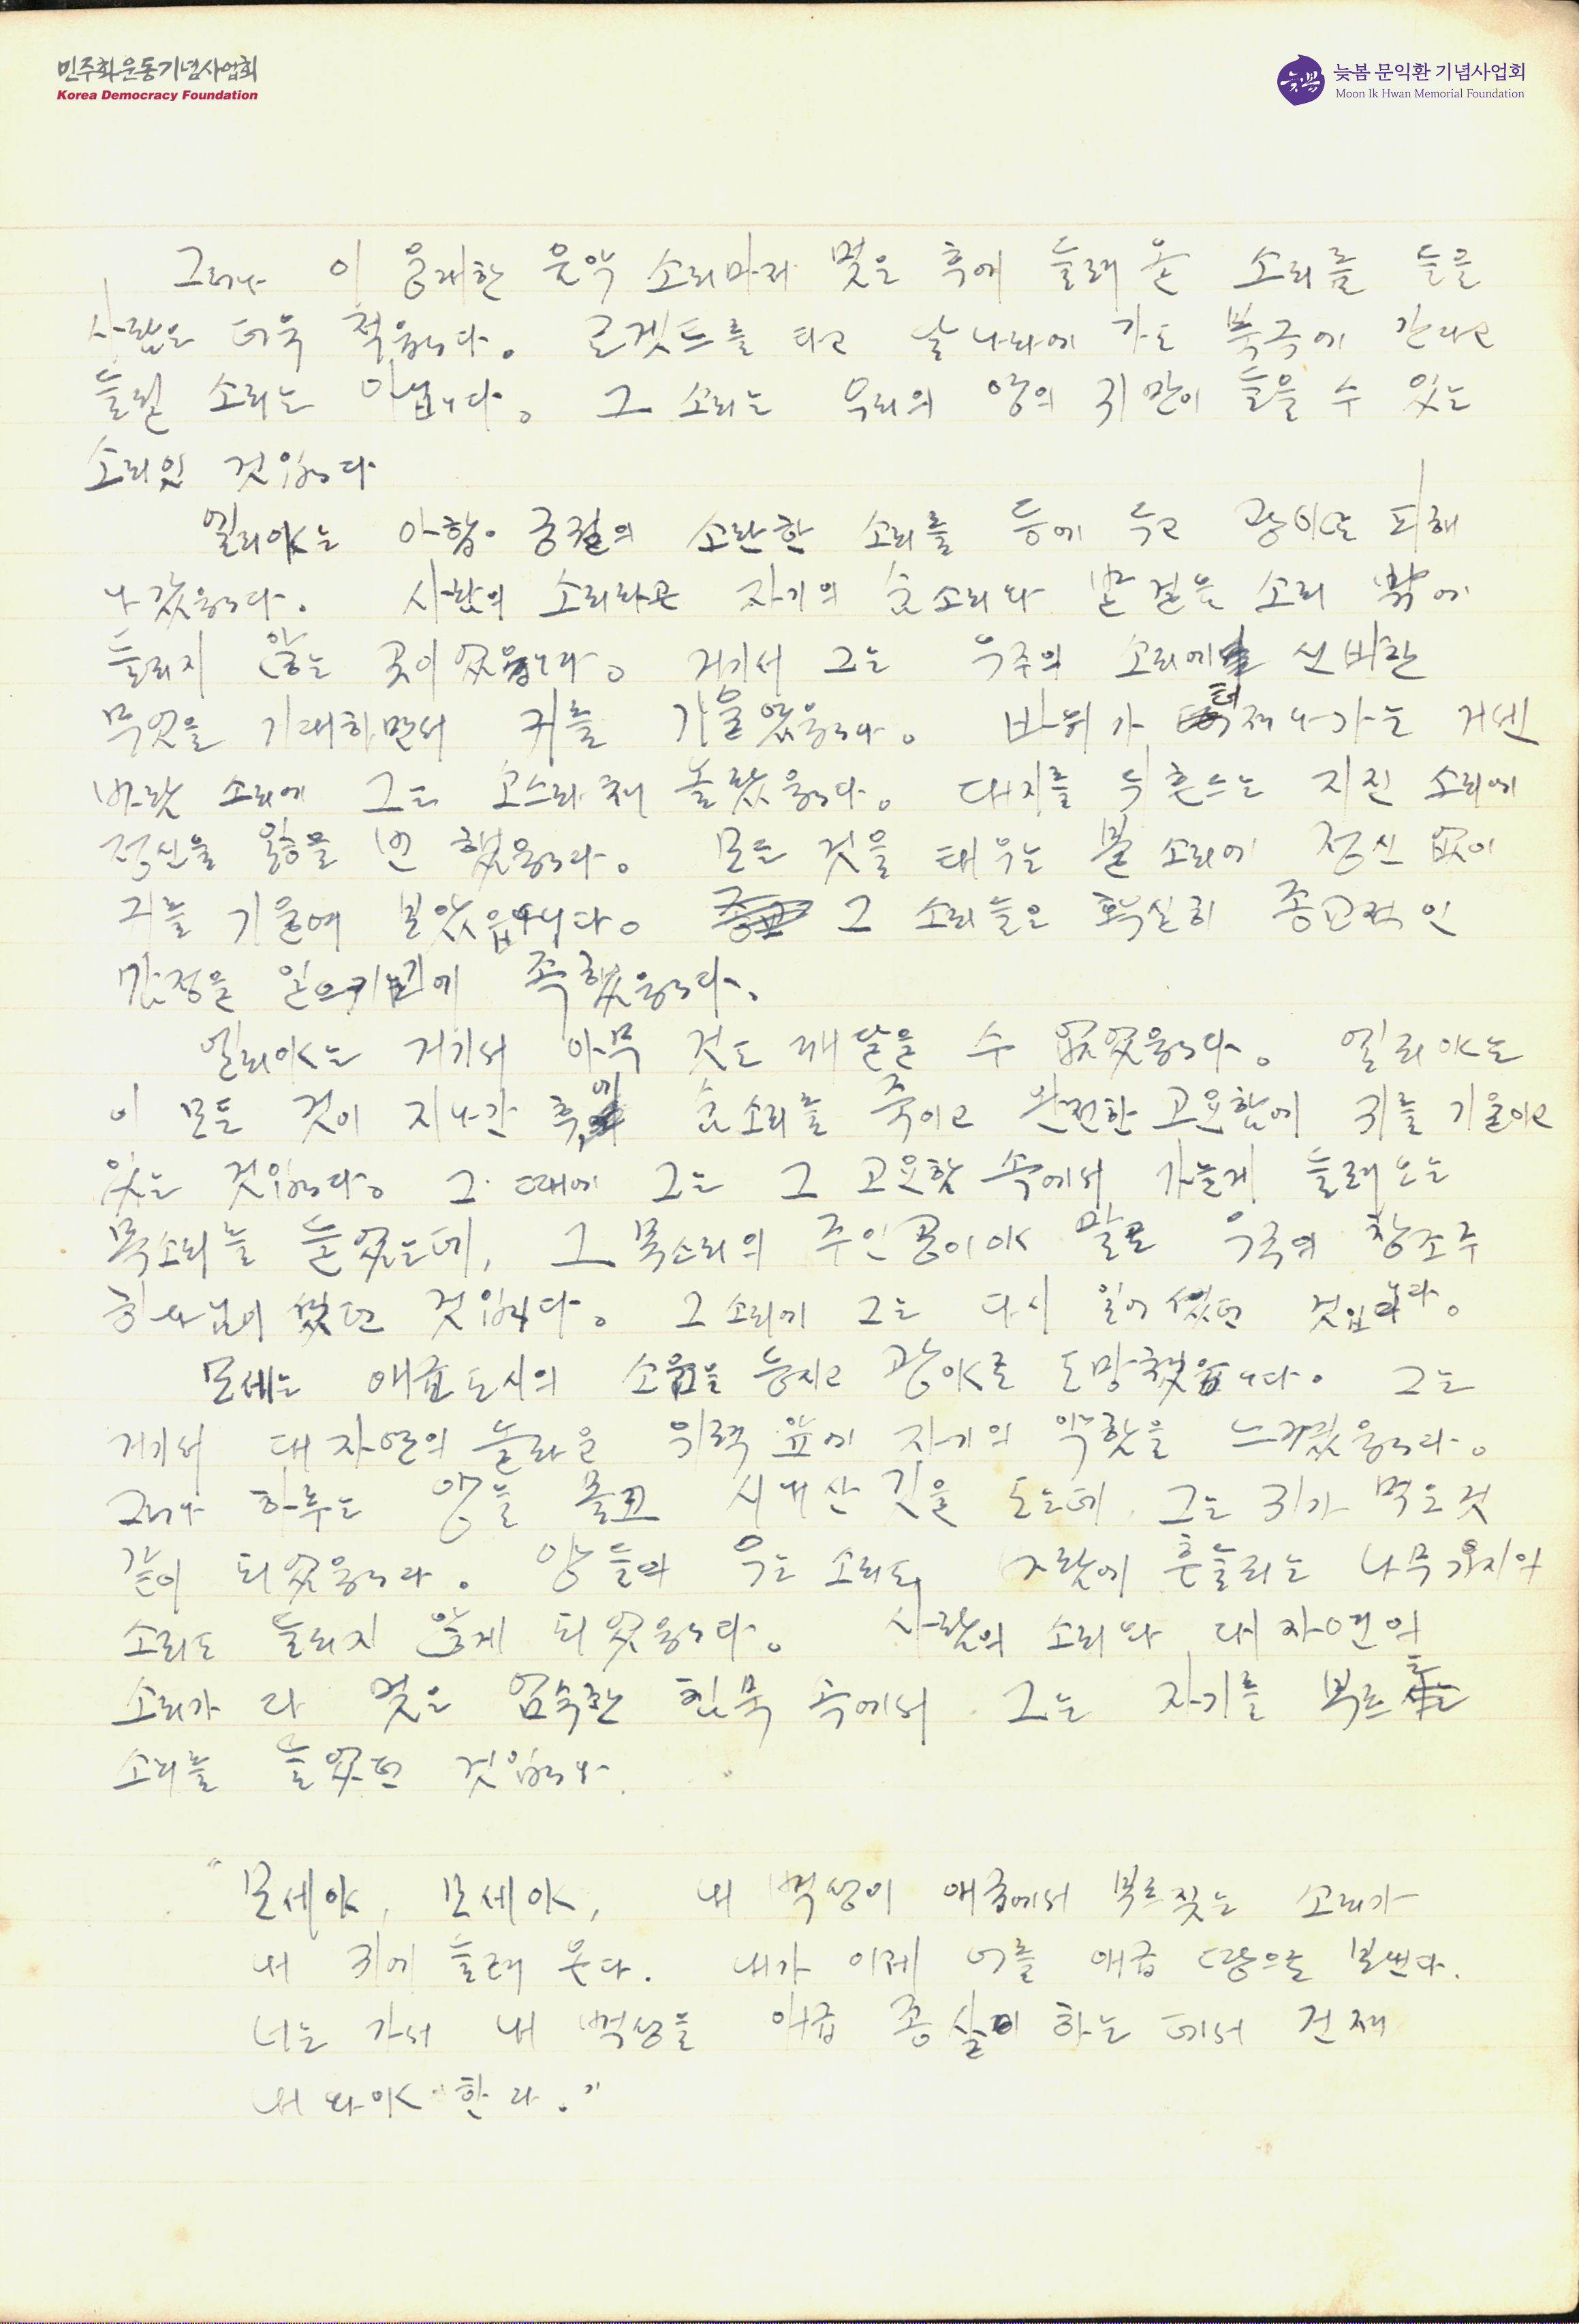 민주화운동기념사업회
Korea Democracy Foundation
늦봄
늦봄 문익환 기념사업회
Moon Ik Hwan Memorial Foundation
그러나 이 웅대한 음악 소리마저 멎은 후에 들려 온 소리를 들을
사람은 더욱 적읍니다. 로켓트를 타고 달나라에 가도 북극에 간다고
들릴 소리는 아닙니다. 그 소리는 우리의 영의 귀만이 들을 수 있는
소리인 것입니다
엘리야는 아합 궁전의 소란한 소리를 등에 두고 광야로 피해
나갔읍니다. 사람의 소리라곤 자기의 숨소리와 발걸음 소리 밖에
들리지 않는 곳이었읍니다. 거기서 그는 우주의 소리에 신비한
무엇을 기대하면서 귀를 기울였읍니다. 바위가 터져나가는 거센
바람 소리에 그는 소스라쳐 놀랐읍니다. 대지를 뒤흔드는 지진 소리에
정신을 잃을 번 했읍니다. 모든 것을 태우는 불 소리에 정신 없이
귀를 기울여 보았읍니다. 그 소리들은 확실히 종교적인
감정을 일으키기에 족했읍니다.
엘리야는 거기서 아무 것도 깨달을 수 없었읍니다. 엘리야는
이 모든 것이 지나간 후에 숨소리를 죽이고 완전한 고요함에 귀를 기울이고
있는 것입니다. 그 때에 그는 그 고요함 속에서 가늘게 들려오는
목소리를 들었는데, 그 목소리의 주인공이야 말로 우주의 창조주
하나님이셨던 것입니다. 그 소리에 그는 다시 일어 섰던 것입니다.
모세는 애급 도시의 소음을 등지고 광야로 도망했읍니다. 그는
거기서 대자연의 놀라운 위력 앞에 자기의 약함을 느꼈읍니다.
그러나 하루는 양을 몰고 시내산 깃을 도는데, 그는 귀가 먹은 것
같이 되었읍니다. 양들의 우는 소리도, 바람에 흔들리는 나무가지의
소리도 들리지 않게 되었읍니다. 사람의 소리와 대자연의
소리가 다 멎은 엄숙한 침묵 속에서 그는 자기를 부르는
소리를 들었던 것입니다.
"모세야, 모세야, 내 백성이 애급에서 부르짖는 소리가
내 귀에 들려 온다. 내가 이제 너를 애급 땅으로 보낸다.
너는 가서 내 백성을 애급 종살이 하는 데서 건져
내와야 한다."